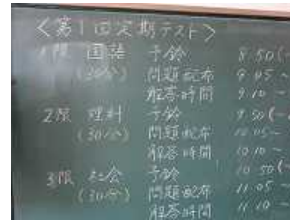 <第1回定期テスト>
1限 国語 予鈴 8:50(~
(50分) 問題配布 9:05~
解答時間 9:10~
2限 理科 予鈴 9:50(~
(50分) 問題配布 10:05~
解答時間 10:10~
3限 社会 予鈴 10:50(~
(50分) 問題配布 11:05~
解答時間 11:10~